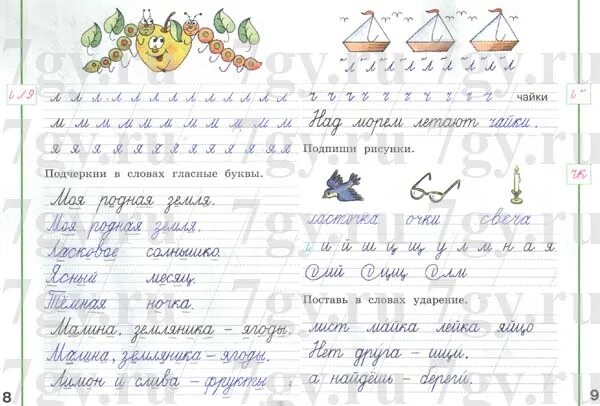 л л л л л л л л л л л л л л
м м м м м м м м м м м м
я я я я я я я я я я я я я
Подчеркни в словах гласные буквы.
Моя родная земля.
Моя родная земля.
Ласковое солнышко.
Ясный месяц.
Тёмная ночка.
Малина, земляника – ягоды.
Малина, земляника – ягоды.
Лимон и слива – фрукты.
8
л л л л л л л л
ч ч ч ч ч ч ч ч ч ч чайки
Над морем летают чайки.
Подпиши рисунки.
ласточка очки свеча
и и й ш ц щ у л м н а я
Поставь в словах ударение.
лист майка лейка яйцо
Нет друга – ищи,
а найдёшь – береги.
9
7gy.ru